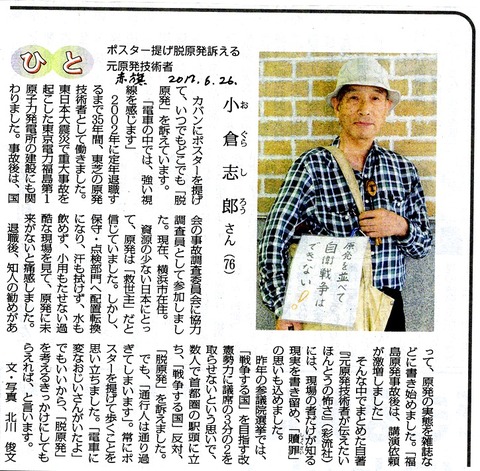 ひと
ポスター提げ脱原発訴える
元原発技術者
赤旗 2017.6.26.
小倉志郎さん(76)
お ぐら し ろう
カバンにポスターを提げ
て、いつでもどこでも「脱
原発」を訴えています。
「電車の中では、強い視
線を感じます」
2002年に定年退職す
るまで35年間、東芝の原発
技術者として働きました。
東日本大震災で重大事故を
起こした東京電力福島第1
原子力発電所の建設にも関
わりました。事故後は、国
会の事故調査委員会に協力
調査員として参加しまし
た。現在、横浜市在住。
資源の少ない日本にとっ
て、原発は「救世主」だと
信じていました。しかし、
保守・点検部門へ配置転換
になり、汗も拭けず、水も
飲めず、小用もたせない過
酷な現場を見て、原発に未
来がないと痛感しました。
退職後、知人の勧めがあ
って、原発の実態を雑誌な
どに書き始めました。「福
島原発事故後は、講演依頼
が激増しました」
そんな中でまとめた自著
『元原発技術者が伝えたい
ほんとうの怖さ』(彩流社)
には、現場の者だけが知る
現実を書き留め、「贖罪」
しょくざい
の思いも込めました。
昨年の参議院選挙では、
「戦争する国」を目指す改
憲勢力に議席の3分の2を
取らせないという思いで、
数人で首都圏の駅頭に立
ち、「戦争する国」反対、
「脱原発」を訴えました。
でも、「通行人は通り過
ぎてしまいます」。常にポ
スターを提げて歩くことを
思い立ちました。「電車に
変なおじいさんがいたよ」
でもいいから、「脱原発」
を考えるきっかけにしても
らえれば、と言います。
文・写真 北川 俊文
原発を並べて
自衛戦争は
できない!